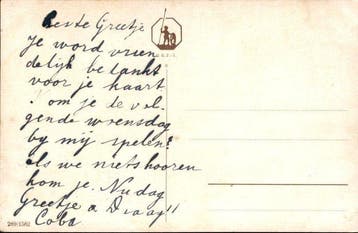 Beste Greetje
Je word vrien
delijk bedankt
voor je kaart
. om je te vol
gende woensdag
by mij spelen?
als we niets hooren
kom je. Nu dag
Greetje a Draay!!
Coba